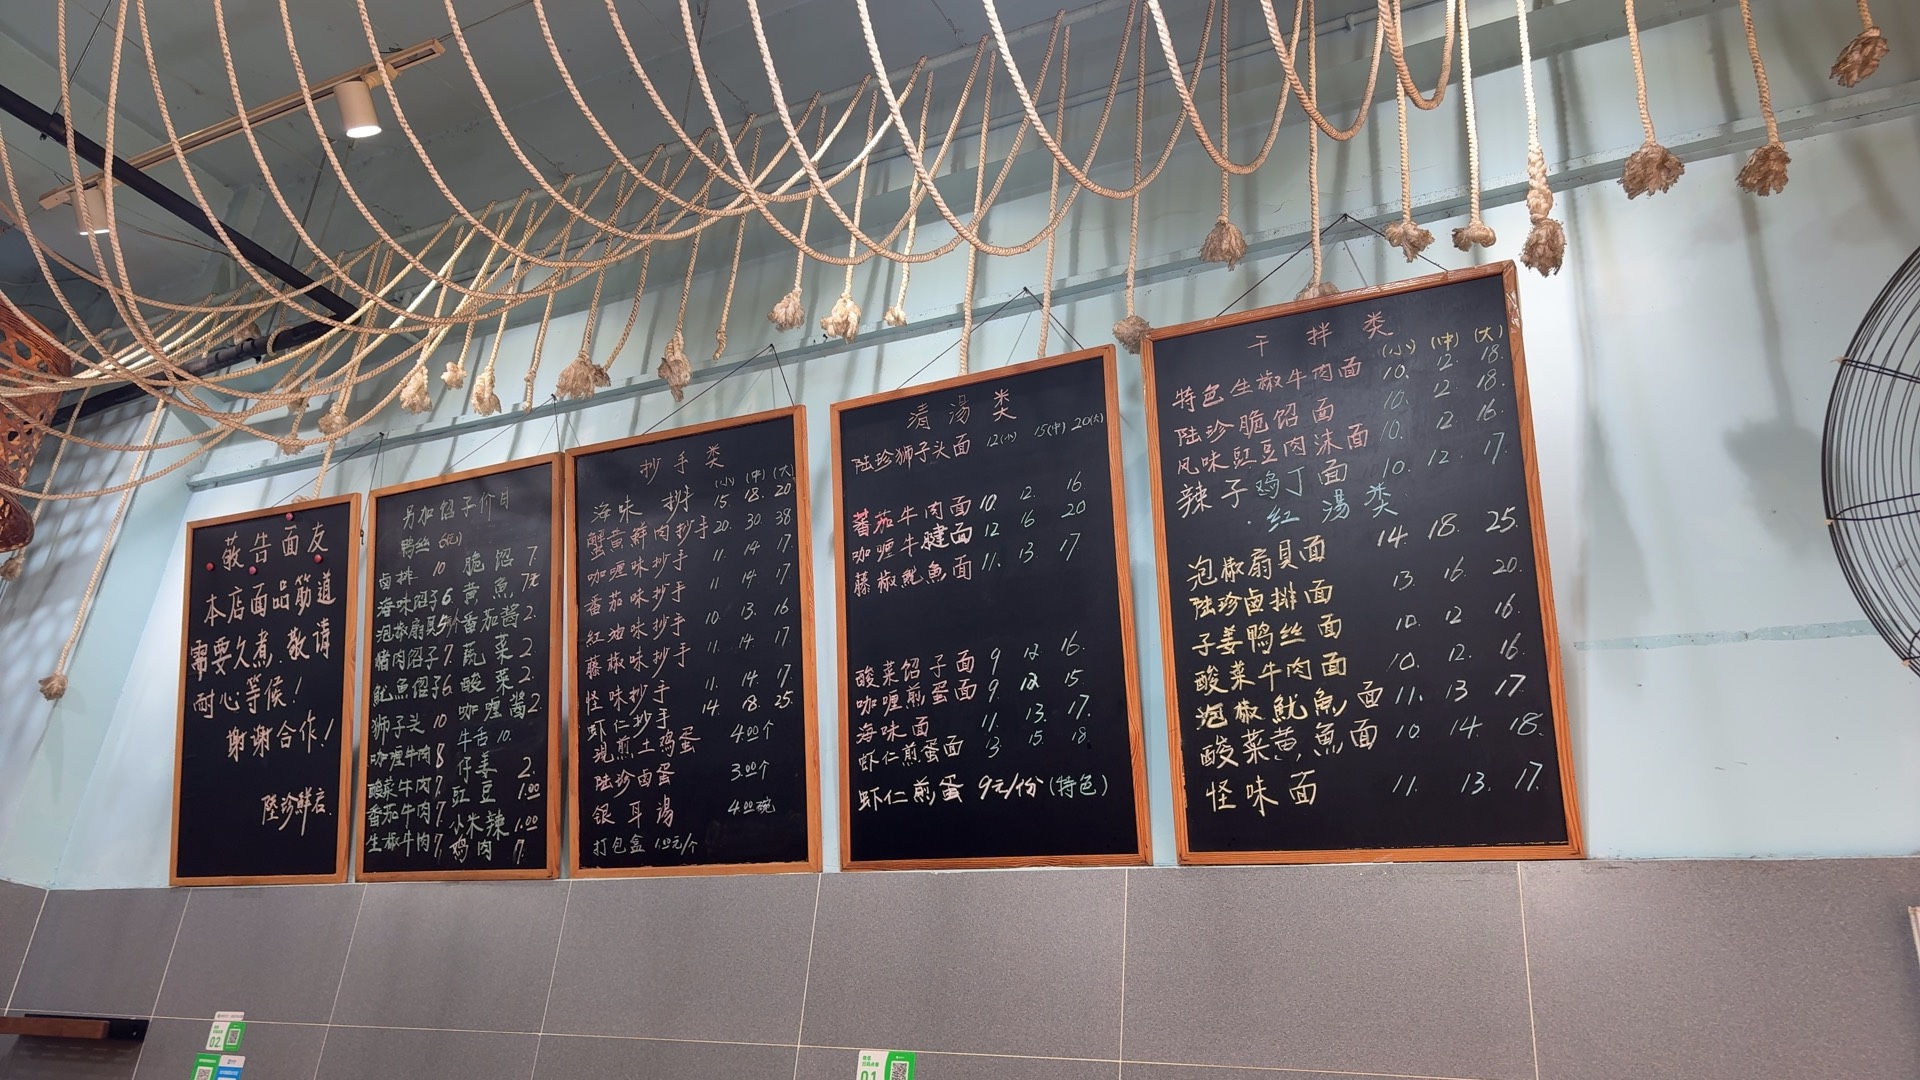 敬告面友
本店面品筋道
需要久煮.敬请
耐心等候!
谢谢合作!
陸珍鲜店.
另加馅子价目
鸭丝 6(元)
卤排 10 脆馅 7
海味馅子6 黄魚 7元
泡椒扇貝 番茄酱2.
猪肉馅子7. 蔬菜2
魷魚馅子6. 酸菜2.
狮子头 10 咖喱酱2.
咖喱牛肉8 牛舌10.
酸菜牛肉7. 仔姜 2.
番茄牛肉7 豇豆 1.00
生椒牛肉7, 小米辣 1.00
鸡肉 7.
抄手类
(小) (中) (大)
海味抄手 15 18. 20
蟹黄鲜肉抄手 20. 30 38
咖喱味抄手 11. 14 17.
番茄味抄手 11 14. 17
紅油味抄手 10. 13. 16
藤椒味抄手 11. 14. 17
怪味抄手 11. 14. 17
虾仁抄手 14. 18. 25.
現煎土鸡蛋 4.00个
陆珍卤蛋 3.00个
银耳湯 4.00碗
打包盒 1.00元/个
清湯类
陆珍狮子头面 12(小) 15(中) 20(大)
蕃茄牛肉面 10 12. 16
咖喱牛腱面 12 16 20
藤椒魷魚面 11. 13. 17
酸菜馅子面 9 12 16.
咖喱煎蛋面 9. 12 15
海味面 11. 13. 17.
虾仁煎蛋面 13. 15. 18.
虾仁煎蛋 9元/份(特色)
干拌类
(小) (中) (大)
特色生椒牛肉面 10. 12. 18.
陆珍脆馅面 10. 12 18.
风味豇豆肉沫面 10. 12 16.
辣子鸡丁面 10. 12. 17.
.红湯类
泡椒扇貝面 14. 18. 25.
陆珍卤排面 13. 16. 20.
子姜鸭丝面 10. 12 16.
酸菜牛肉面 10. 12. 16.
泡椒魷魚面 11. 13 17.
酸菜黄魚面 10 14. 18.
怪味面 11. 13. 17.
02.
01